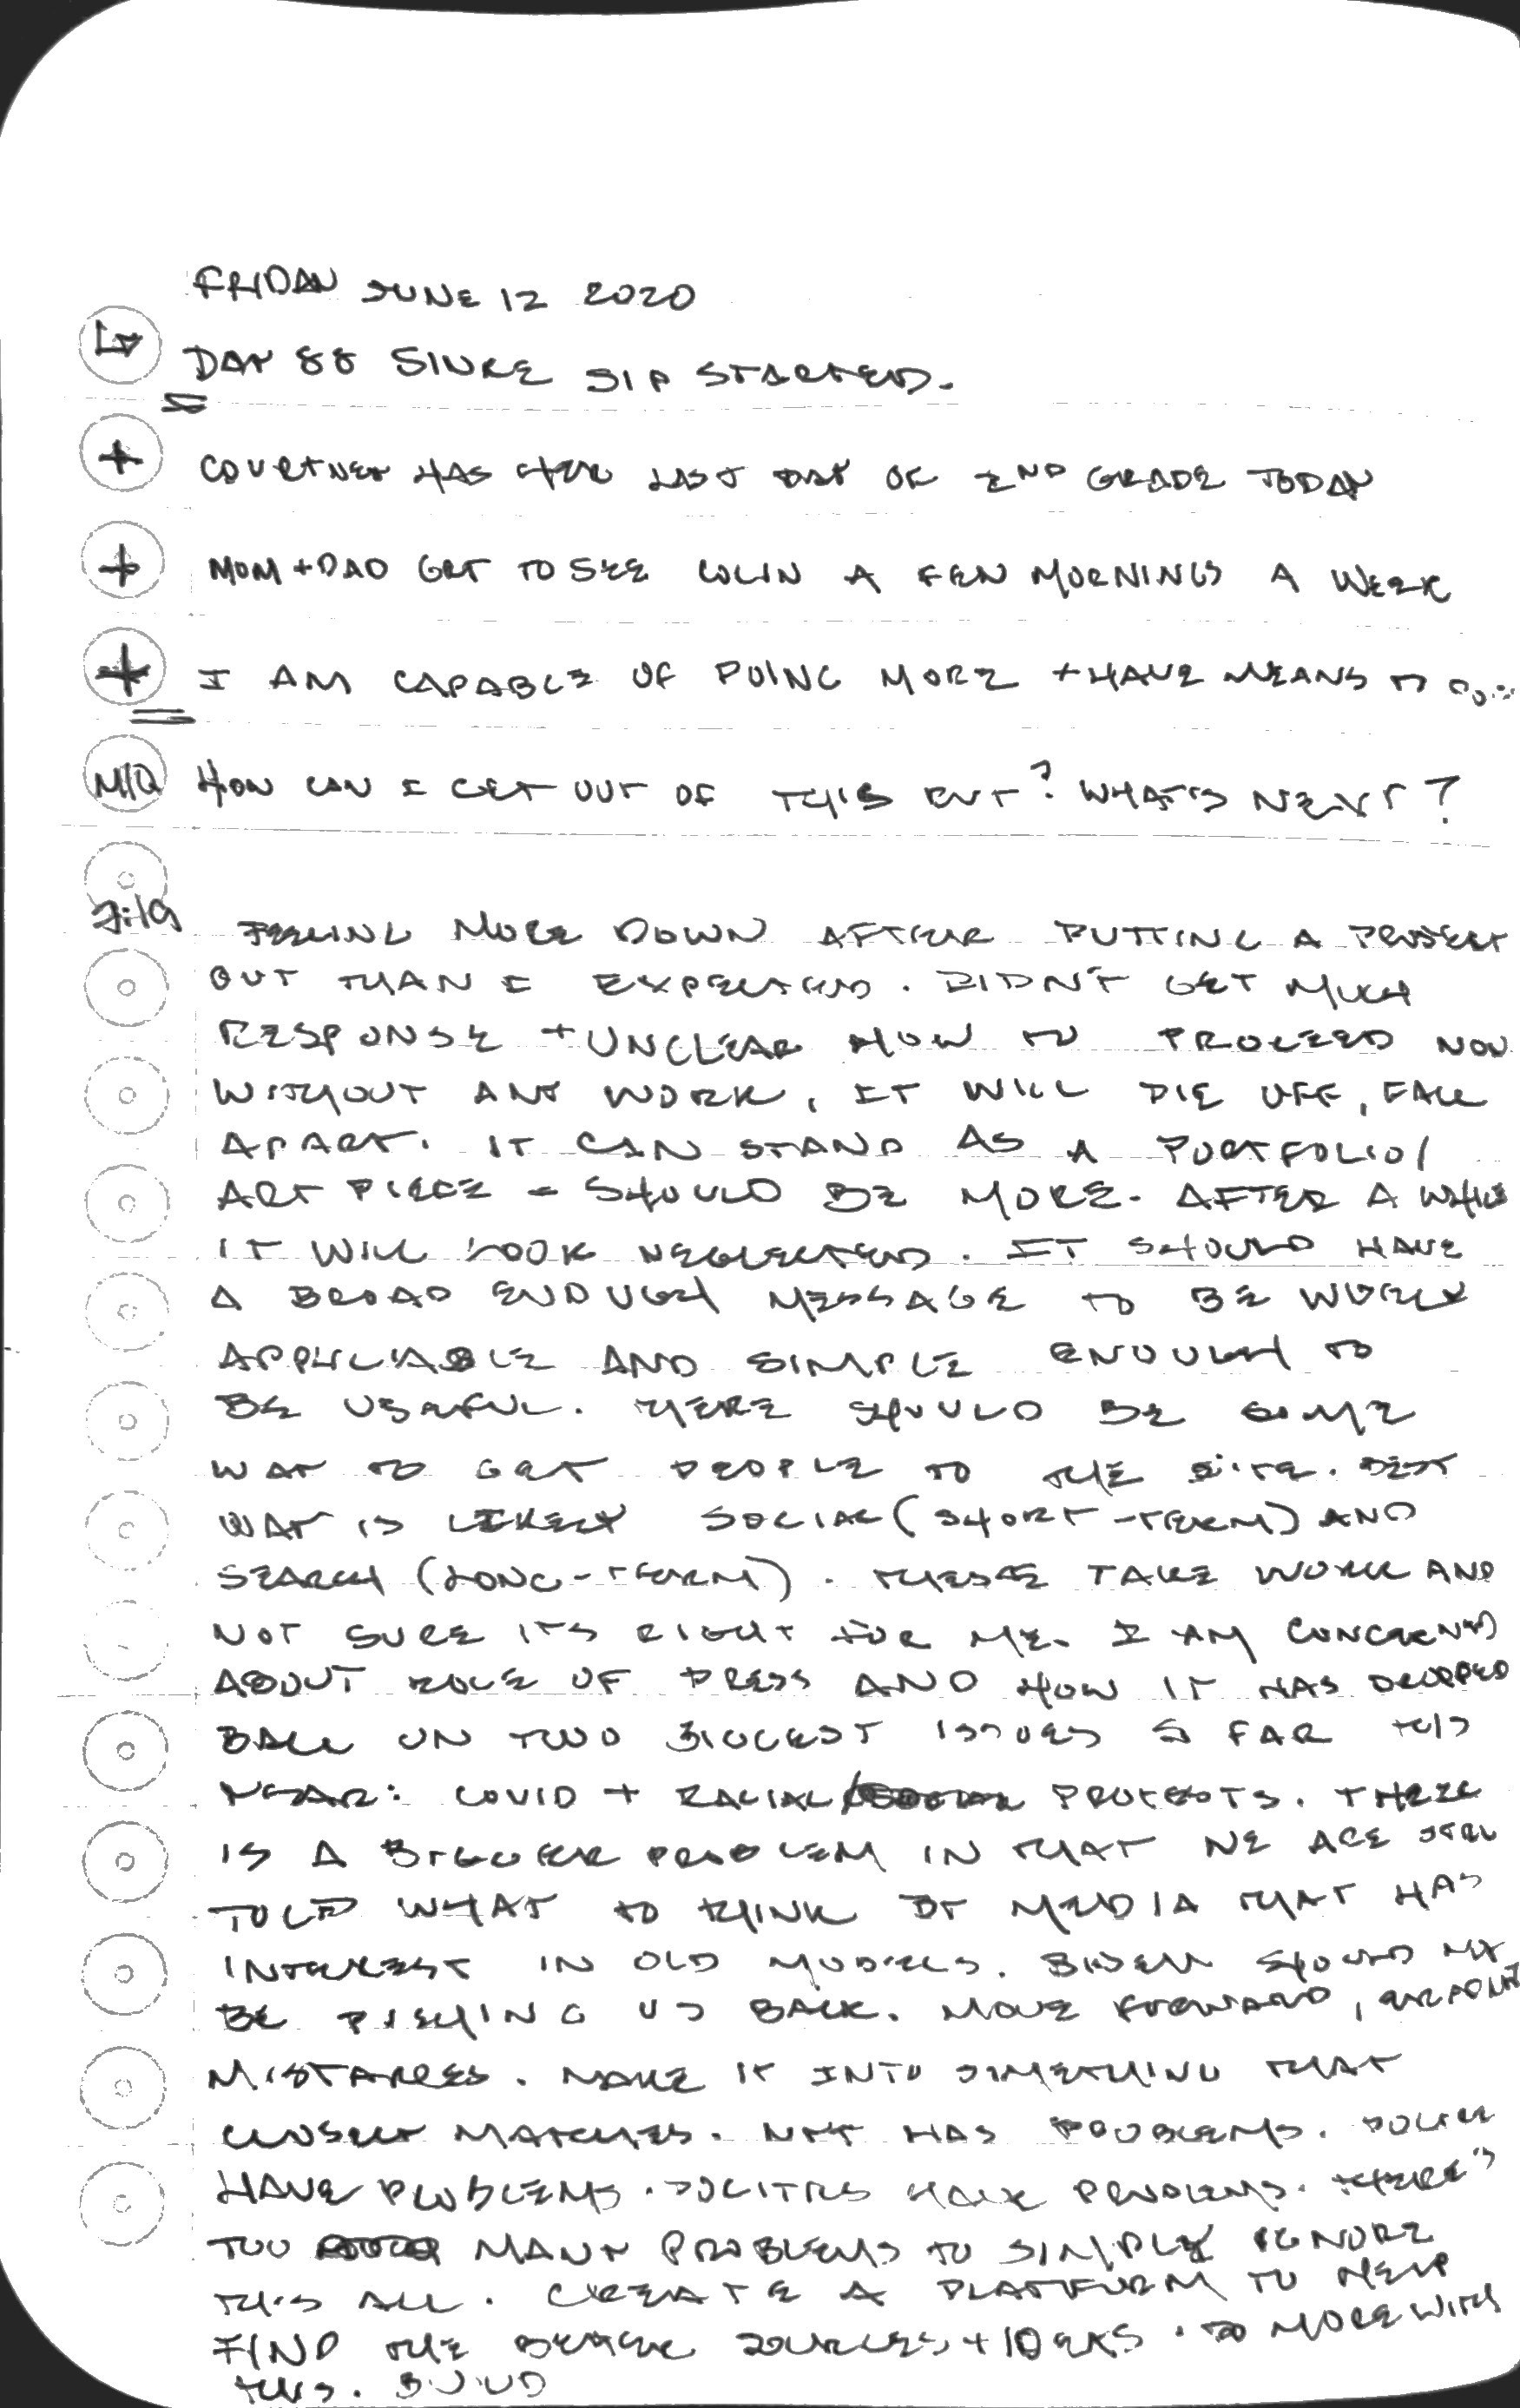 FRIDAY JUNE 12 2020
DAY 88 SINCE SIP STARTED.
+ COURTNEY HAS HER LAST DAY OF 2ND GRADE TODAY
+ MOM + DAD GET TO SEE COLIN A FEW MORNINGS A WEEK
+ I AM CAPABLE OF DOING MORE + HAVE MEANS TO DO
M/Q HOW CAN I GET OUT OF THIS RUT? WHAT'S NEXT?
7:19 FEELING MORE DOWN AFTER PUTTING A PROJECT
OUT THAN I EXPECTED. DIDN'T GET MUCH
RESPONSE + UNCLEAR HOW TO PROCEED NOW
WITHOUT ANY WORK, IT WILL DIE OFF, FALL
APART. IT CAN STAND AS A PORTFOLIO/
ART PIECE - SHOULD BE MORE. AFTER A WHILE
IT WILL LOOK NEGLECTED. IT SHOULD HAVE
A BROAD ENOUGH MESSAGE TO BE
APPLICABLE AND SIMPLE ENOUGH TO
BE USEFUL. THERE SHOULD BE SOME
WAY TO GET PEOPLE TO THE SITE. BEST
WAY IS LIKELY SOCIAL (SHORT-TERM) AND
SEARCH (LONG-TERM). THESE TAKE WORK AND
NOT SURE ITS RIGHT FOR ME. I AM CONCERNED
ABOUT ROLE OF PRESS AND HOW IT HAS DROPPED
BALL ON TWO BIGGEST ISSUES SO FAR THIS
YEAR: COVID + RACIAL PROTESTS. THERE
IS A BIGGER PROBLEM IN THAT WE ARE STILL
TOLD WHAT TO THINK BY MEDIA THAT HAS
INTEREST IN OLD MODELS. BIDEN SHOULD NOT
BE PUSHING US BACK. MOVE FORWARD,
MISTAKES. MAKE IT INTO SOMETHING THAT
CLOSELY MATCHES. NYT HAS PROBLEMS. POLICE
HAVE PROBLEMS. POLITICS HAVE PROBLEMS. THERE'S
TOO MANY PROBLEMS TO SIMPLY IGNORE
THIS ALL. CREATE A PLATFORM TO HELP
FIND THE BETTER SOURCES + IDEAS. DO MORE WITH
THIS. BUILD